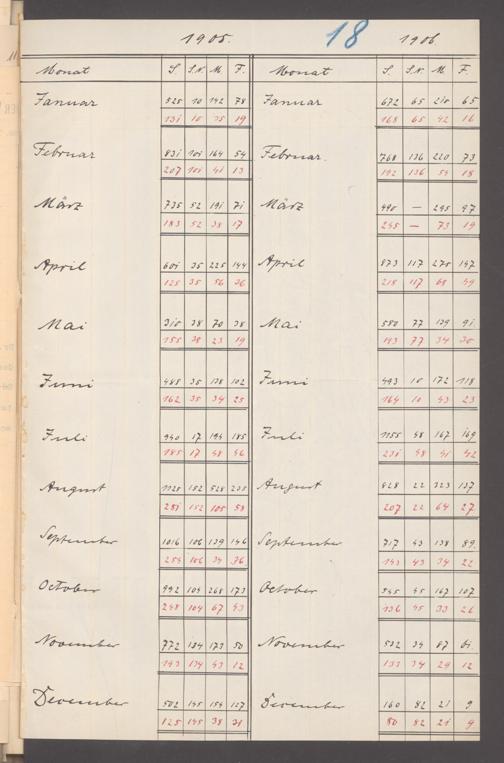 1905. 18 1906.
Monat S. S.N. M F. Monat S. S.N. M F.
Januar 525 10 142 78 Januar 672 65 210 65
131 10 35 19 168 65 42 16
Februar 831 101 164 54 Februar. 768 136 220 73
207 101 41 13 192 136 55 18
März 735 52 191 71 März 490 — 295 97
183 52 38 17 245 — 73 19
April 601 35 225 144 April 873 117 270 147
125 35 56 36 218 117 68 49
Mai 310 38 70 38 Mai 580 77 139 91
155 38 23 19 193 77 34 30
Juni 485 35 138 102 Juni 493 10 172 118
162 35 34 25 164 10 43 23
Juli 940 17 194 185 Juli 1155 48 167 169
185 17 48 46 231 48 41 42
August 1125 152 528 235 August 828 22 323 137
281 152 105 58 207 22 64 27
September 1016 106 139 146 September 717 43 138 89
254 106 34 36 143 43 34 22
October 992 104 268 173 October 545 45 167 107
248 104 67 43 136 45 33 26
November 772 134 173 50 November 532 34 87 61
193 134 43 12 133 34 29 12
December 502 145 154 127 December 160 82 21 9
125 145 38 31 80 82 21 9